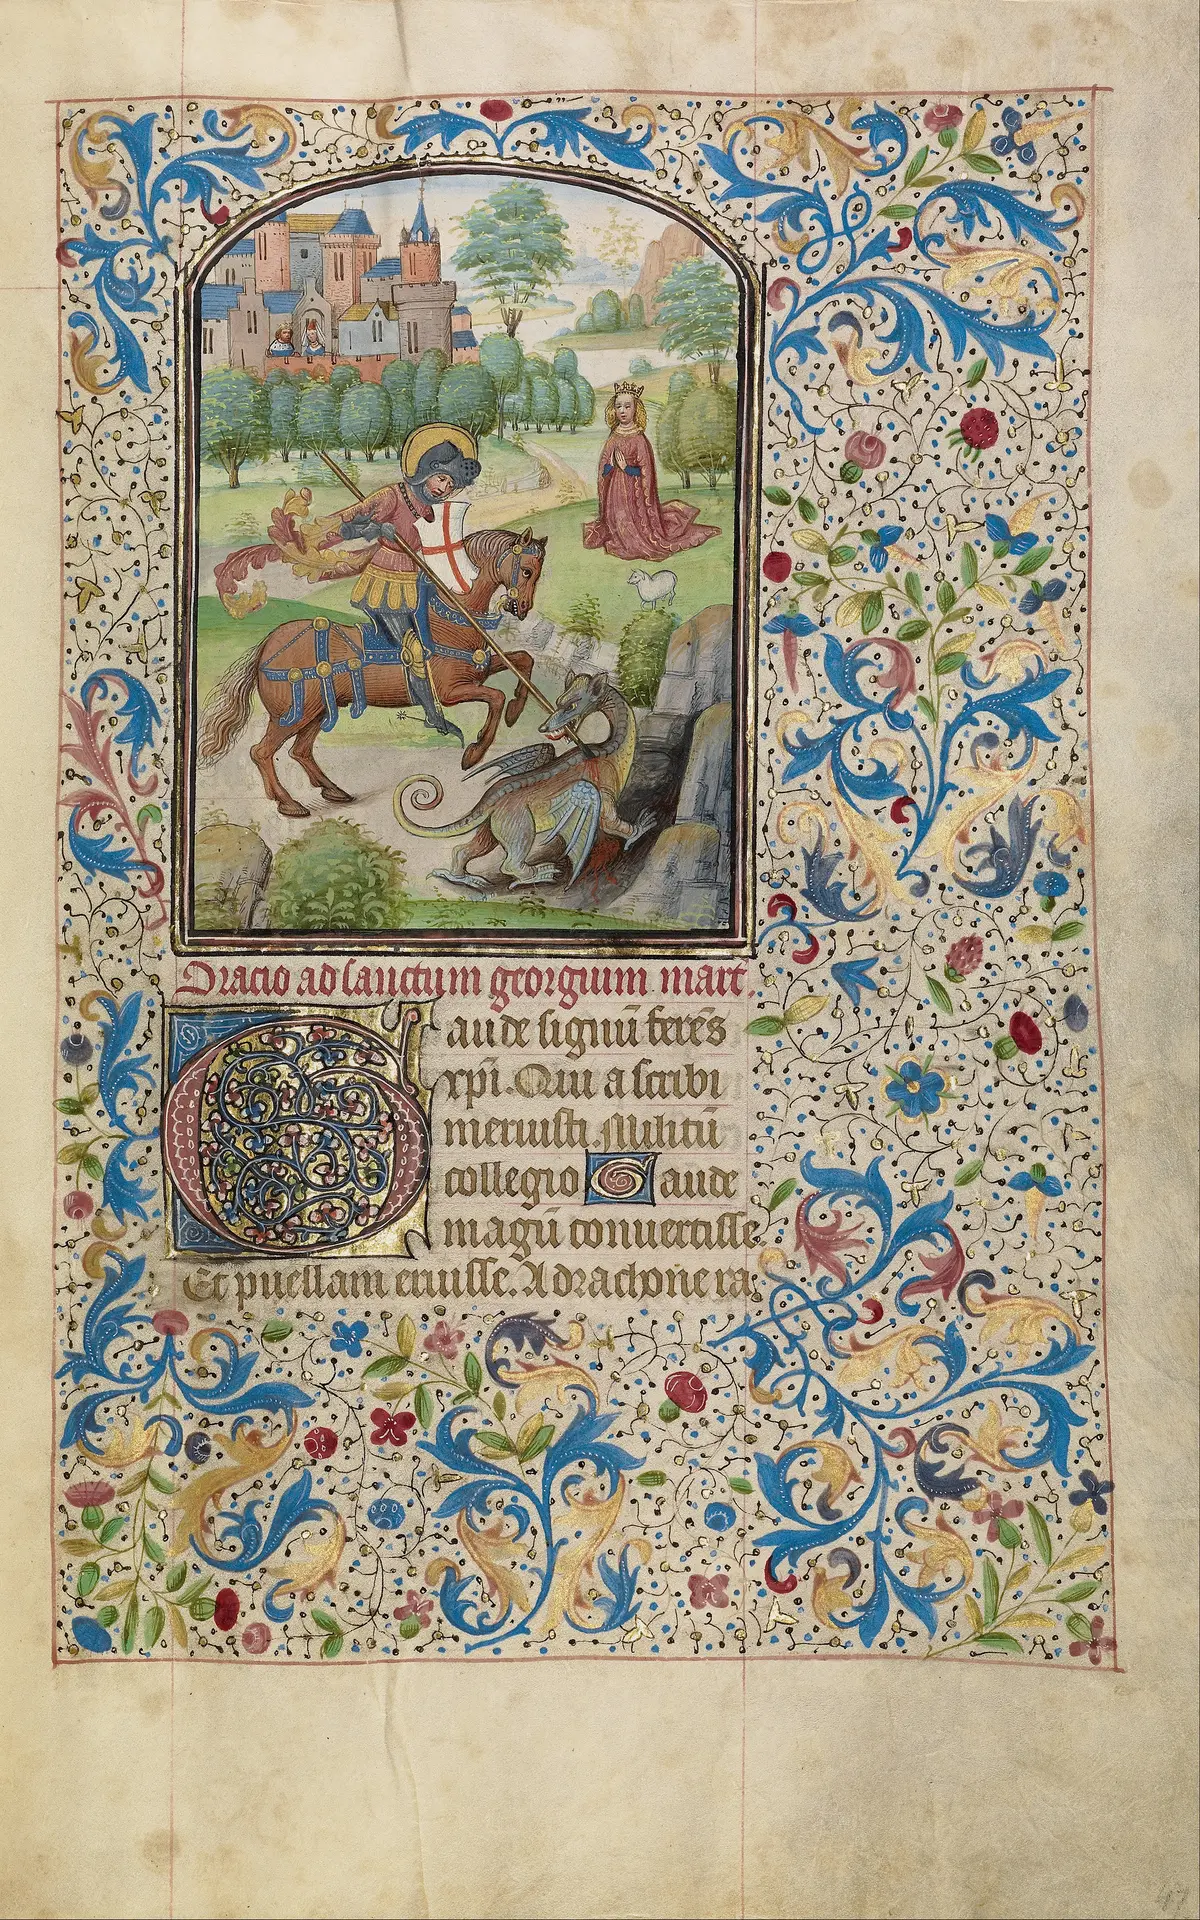 Oracio ad sanctum georgium mart.
Gaude signū ferēs
xp̄i. Qui a scribi
meruisti. Militū
collegio Gaude
magū convertisse
Et puellam eruisse. A drachone ra